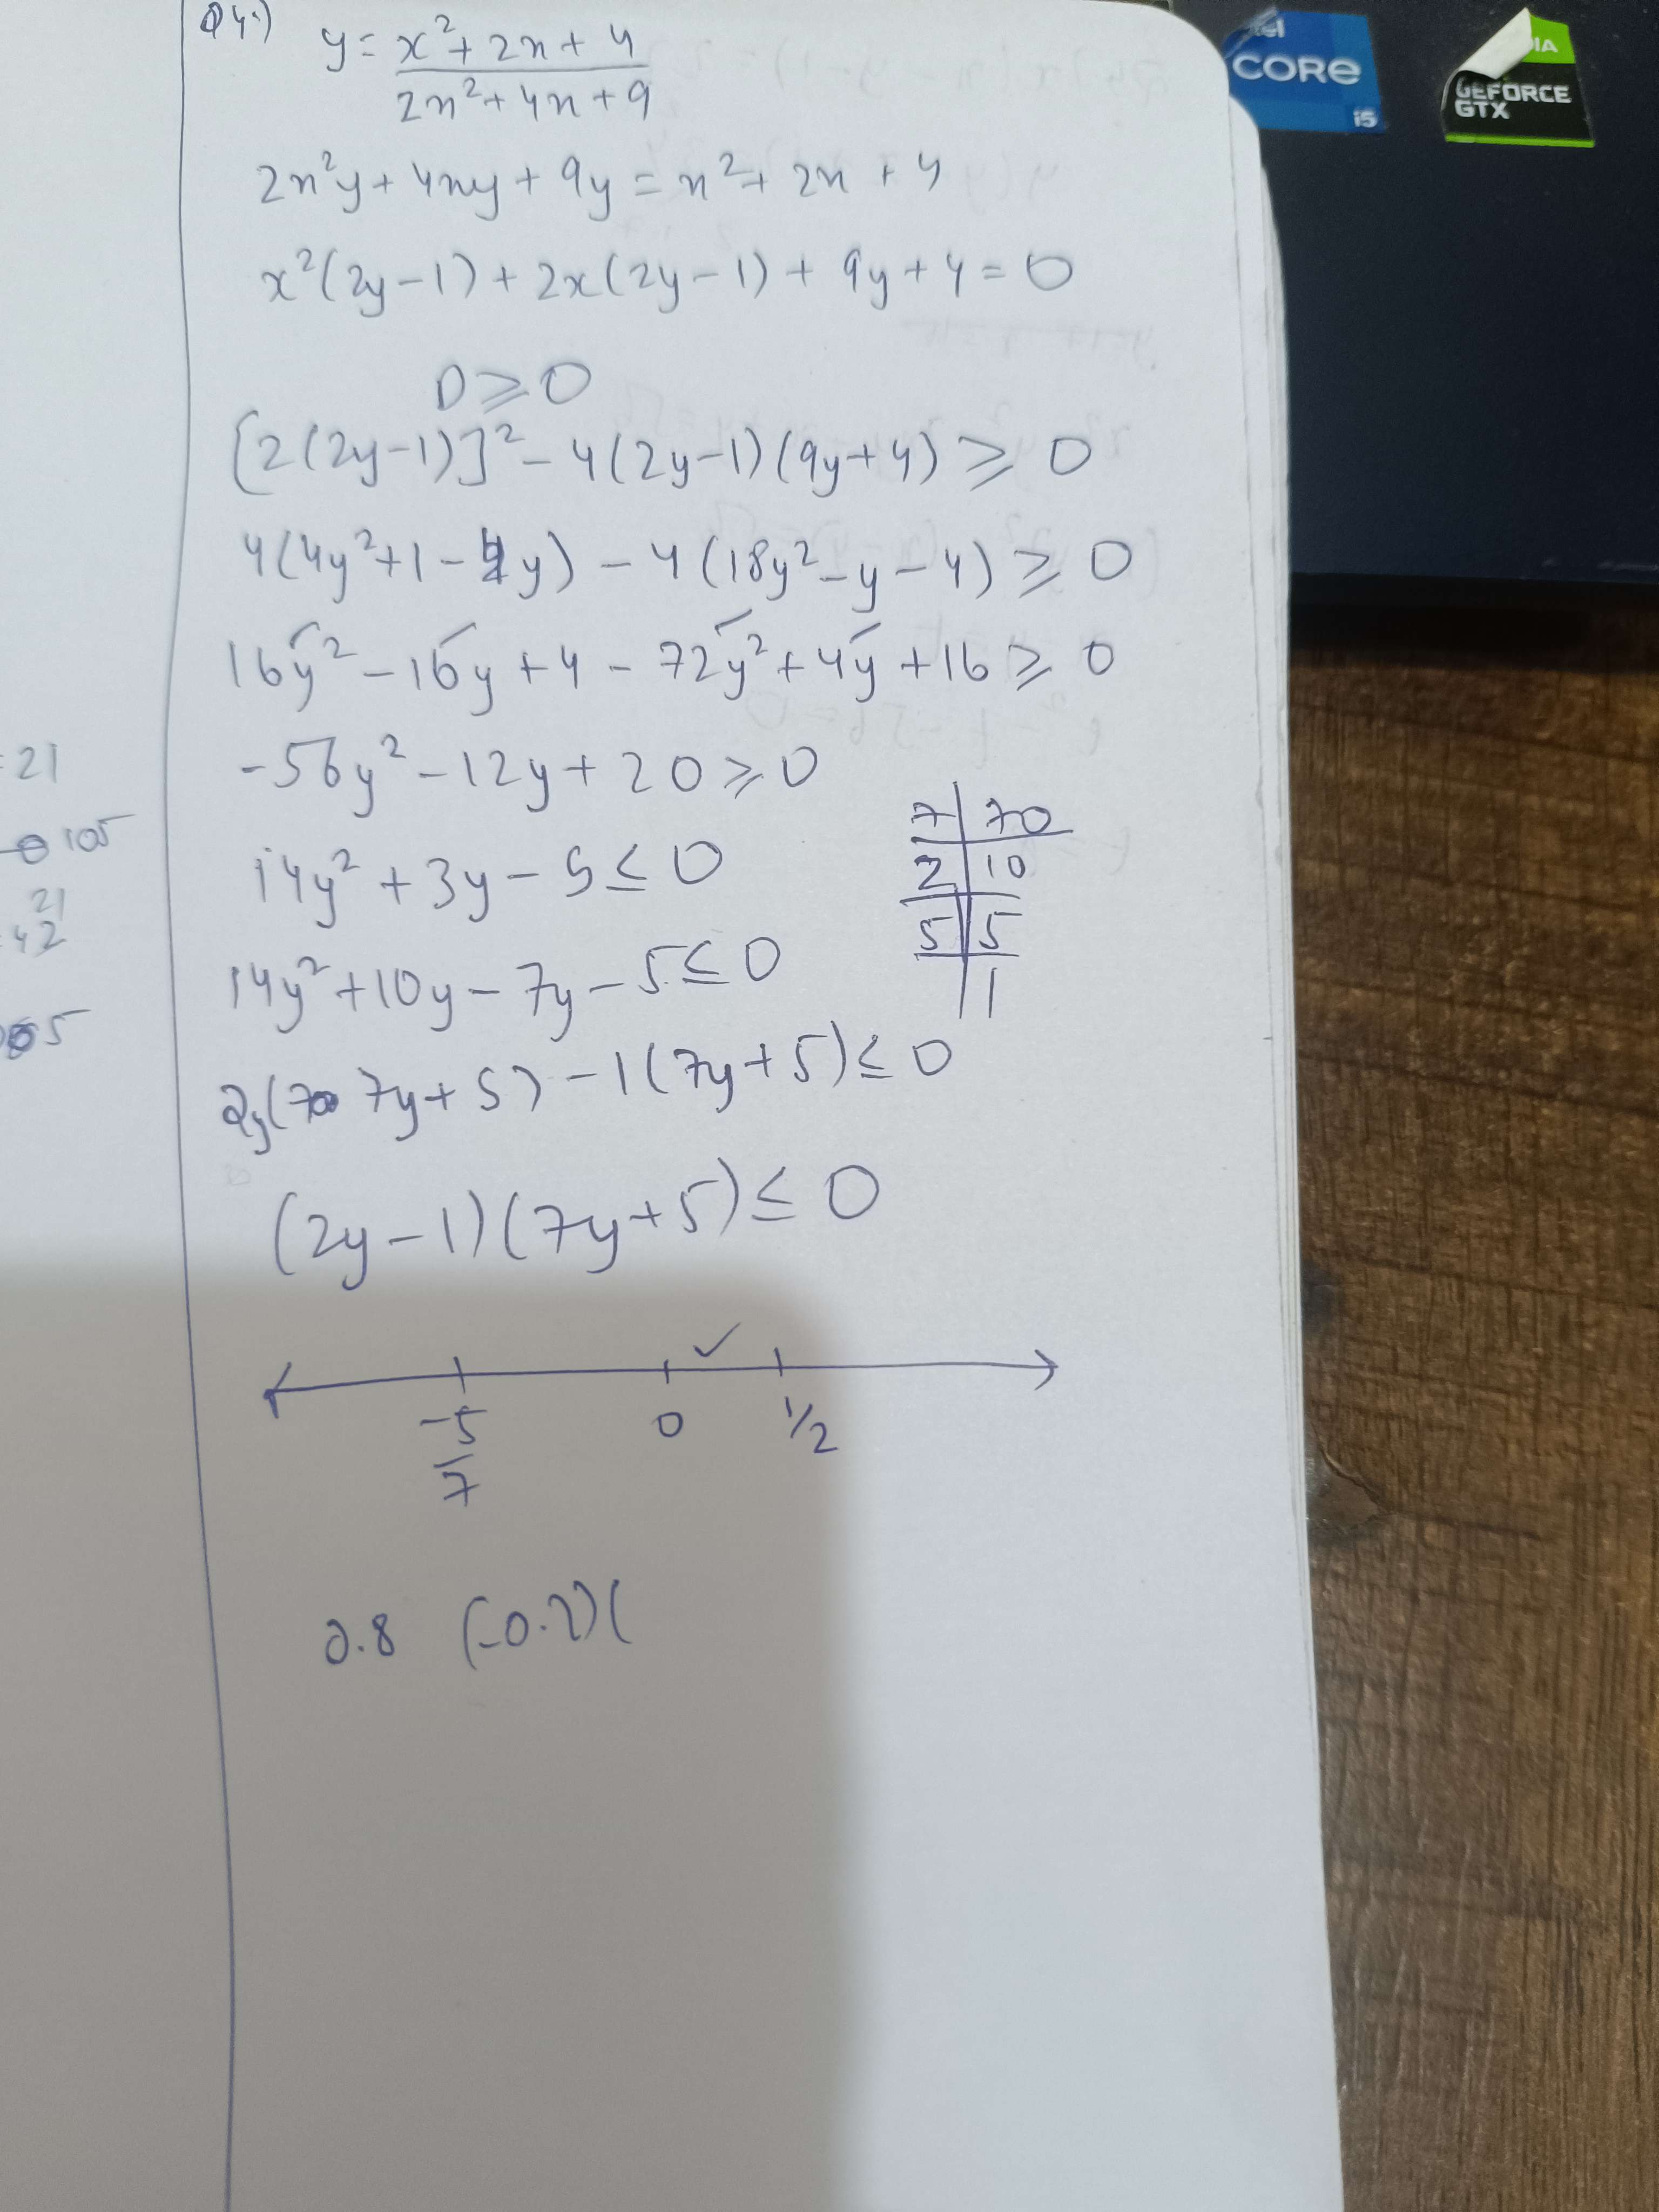 Q4.) y = x²+2x+4 / 2x²+4x+9
2x²y + 4xy + 9y = x² + 2x + 4
x²(2y-1) + 2x(2y-1) + 9y+4 = 0
D ≥ 0
[2(2y-1)]² - 4(2y-1)(9y+4) ≥ 0
4(4y²+1-4y) - 4(18y²-y-4) ≥ 0
16y² - 16y + 4 - 72y² + 4y + 16 ≥ 0
-56y² - 12y + 20 ≥ 0
14y² + 3y - 5 ≤ 0
14y² + 10y - 7y - 5 ≤ 0
2y(7y+5) - 1(7y+5) ≤ 0
(2y-1)(7y+5) ≤ 0
-5/7 0 ✓ 1/2
0.8 (-0.2)(
7 | 70
2 | 10
5 | 5
| 1
= 21
105
21
42
5
CORE
i5
GEFORCE
GTX